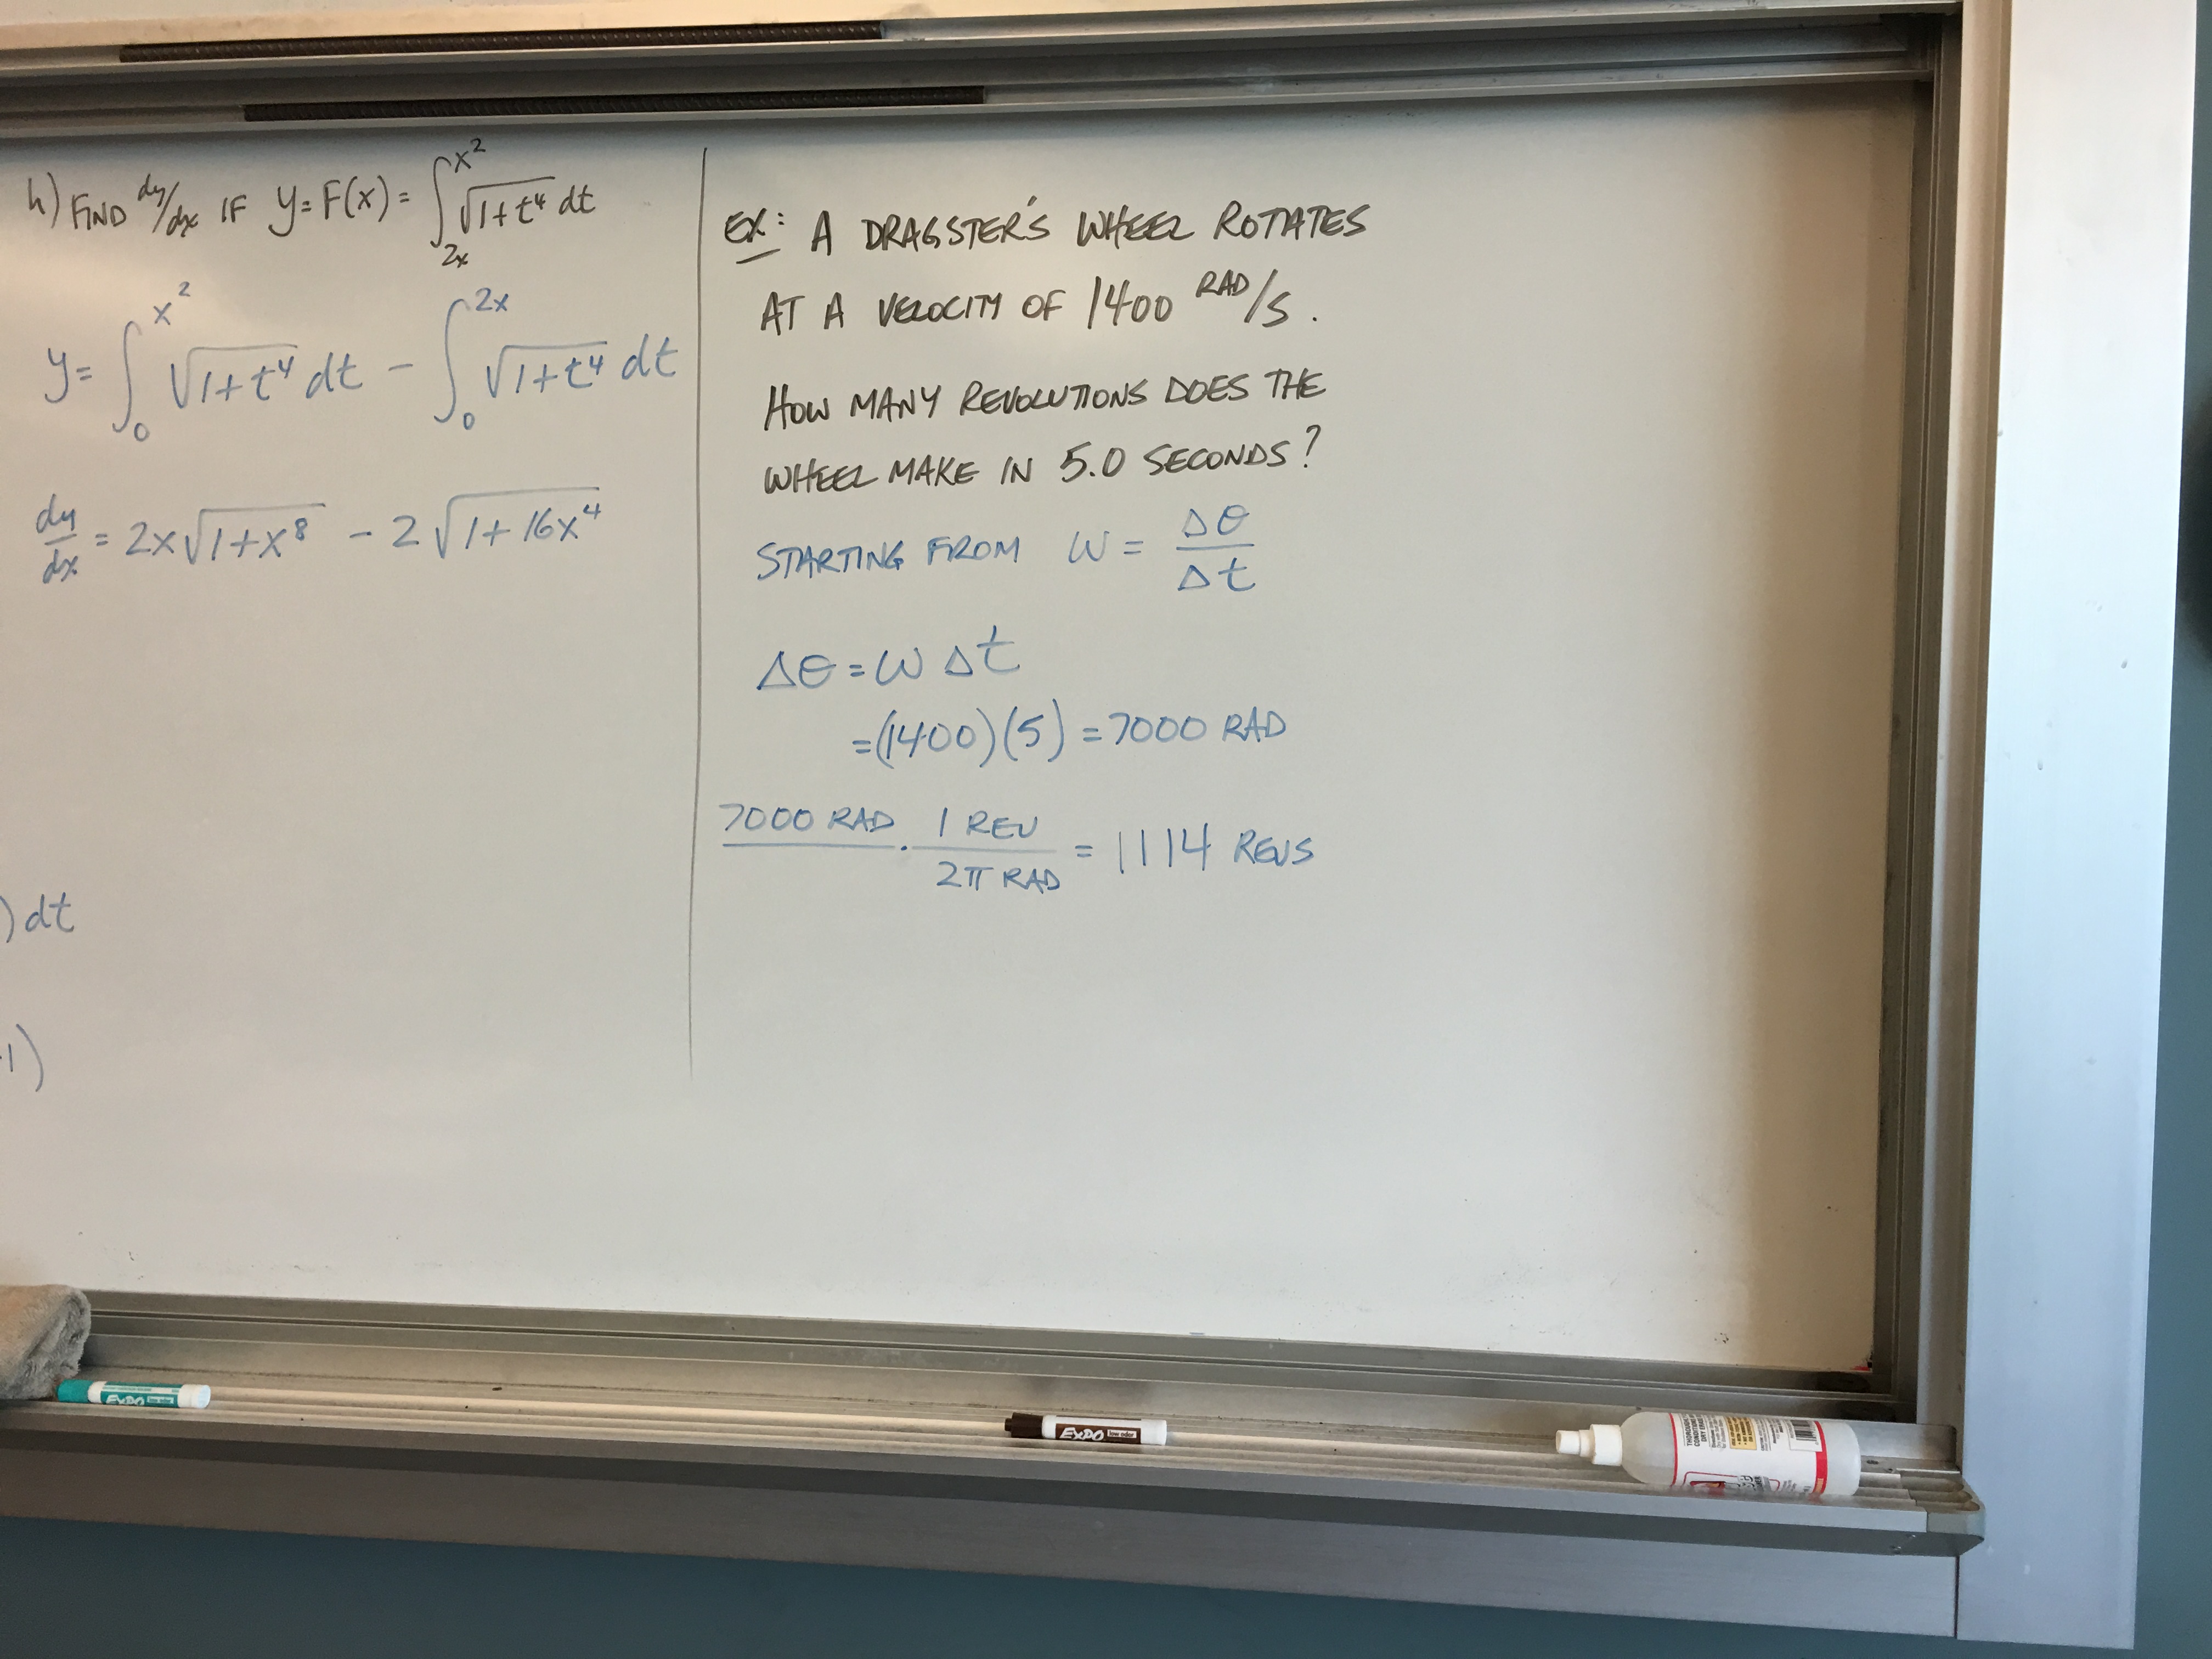 h) FIND dy/dx IF y=F(x)= ∫_{2x}^{x²} √(1+t⁴) dt
y= ∫_0^{x²} √(1+t⁴) dt - ∫_0^{2x} √(1+t⁴) dt
dy/dx = 2x√(1+x⁸) - 2√(1+16x⁴)
) dt
-1)
EX: A DRAGSTER'S WHEEL ROTATES
AT A VELOCITY OF 1400 RAD/S.
HOW MANY REVOLUTIONS DOES THE
WHEEL MAKE IN 5.0 SECONDS?
STARTING FROM ω = Δθ/Δt
Δθ = ω Δt
=(1400)(5) = 7000 RAD
7000 RAD · 1 REV / 2π RAD = 1114 REVS
EXPO
EXPO low odor